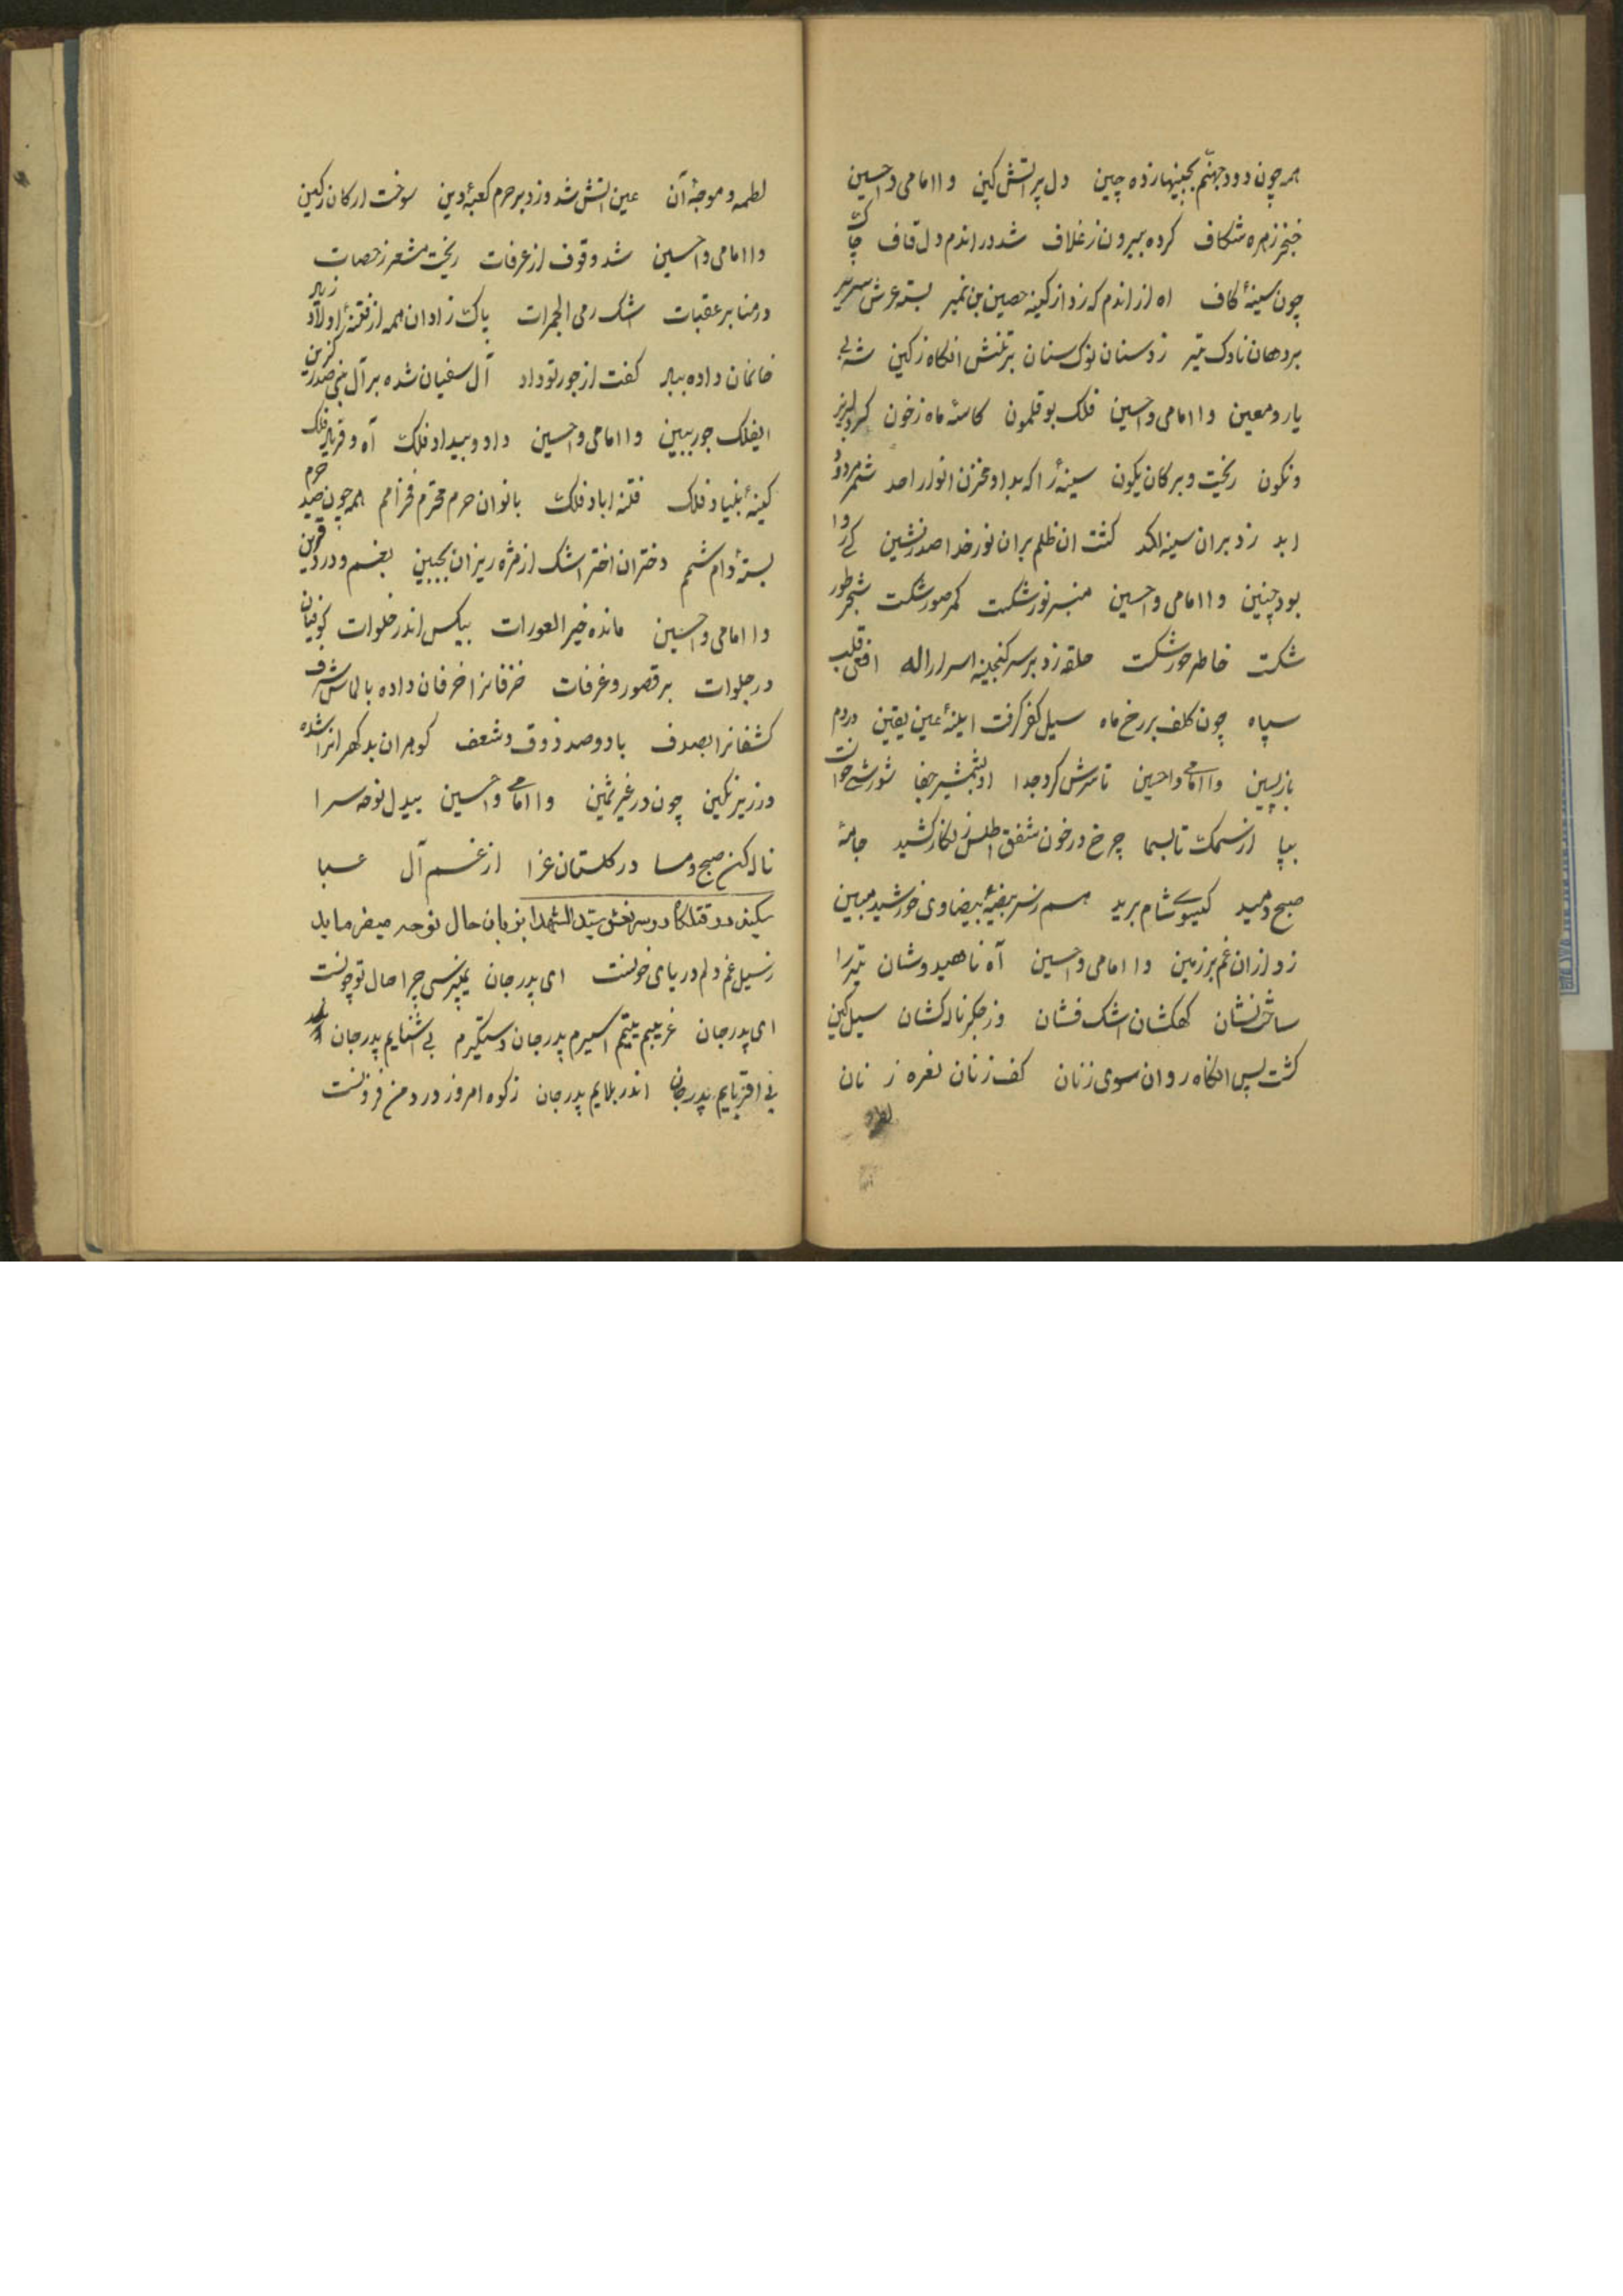 همه چون دود جهنم بجبینها زده چین دل پر اتش کین و اامامی و احسین
خنجر زهره شکاف کرده بیرون ز غلاف شد در اندم دل قاف چاک
چون سینهٔ کاف اه از اندم که زد از کینه حصین بن نمیر بسته عرش سریر
بر دهان ناوک تیر زد سنان نوک سنان بر تنش انکاه ز کین شه بی
یار و معین و اامامی و احسین فلک بوقلمون کاسهٔ ماه ز خون کرد لبریز
و نکون ریخت و بر کان یکون سینهٔ را که بد او مخزن انوار احد شمر مردود
ابد زد بر ان سینه لکد کشت ان ظلم بر ان نور خدا صدر نشین کی روا
بود چنین و اامامی و احسین منبر نور شکست کمر صور شکست شجر طور
شکست خاطر حور شکست حلقه زد بر سر کنجینه اسرار اله افعی قلب
سپاه چون کلف بر رخ ماه سیل کفر کرفت اینهٔ عین یقین در دم
بازپسین و اامامی و احسین تا سرش کرد جدا او بشمشیر جفا شورشی خواست
بپا از سمک تا بسما چرخ در خون شفق اطلس زنکار کشید جامهٔ
صبح دمید کیسوی شام برید هم ز سر بیضهٔ بیضاوی خورشید مبین
زد از ان غم بزمین و اامامی و احسین آه ناهید وشان تیر را
ساخت نشان کهکشان اشک فشان وز جکر ناله کشان سیل کین
کشت پس انکاه روان سوی زنان کف زنان نعره ز نان
لطمه
لطمه و موجهٔ آن عین اتش شد و زد بر حرم کعبهٔ دین سوخت ارکان رکین
و اامامی و احسین شد وقوف از عرفات ریخت مشعر ز حصات
در منا بر عقبات اشک رمی الجمرات پاک زادان همه از فتنهٔ اولاد زیاد
خانمان داده بباد کفت از جور تو داد آل سفیان شده بر آل نبی صدر کزین
ایفلک جور ببین و اامامی و احسین داد و بیداد فلک آه و فریاد فلک
کینهٔ بنیاد فلک فتنه اباد فلک بانوان حرم محترم فخر امم همه چون صید حرم
بستهٔ دام ستم دختران اختر اشک از مژه ریزان بجبین بغم و درد قرین
و اامامی و احسین مانده خیر العورات بیکس اندر خلوات کوفیان
در جلوات بر قصور و غرفات خزفانرا خرفان داده بالماس شرف
کشفانرا بصدف با دو صد ذوق و شعف کوهران بد کهرانرا شده
در زیر نکین چون در غیر ثمین و اامامی و احسین بیدل نوحه سرا
ناله کن صبح و مسا در کلستان عزا از غم آل عبا
سکینه در قتلکاه در سر نعش سید الشهدا بزبان حال نوحه میفرماید
ز سیل غم دلم دریای خونست ای پدر جان نمیپرسی چرا حال تو چونست
ای پدر جان غریبم یتیم اسیرم پدر جان دستکیرم بی اشنایم پدر جان
بی اقربایم پدر جان اندر بلایم پدر جان ز کوه امروز درد من فزونست